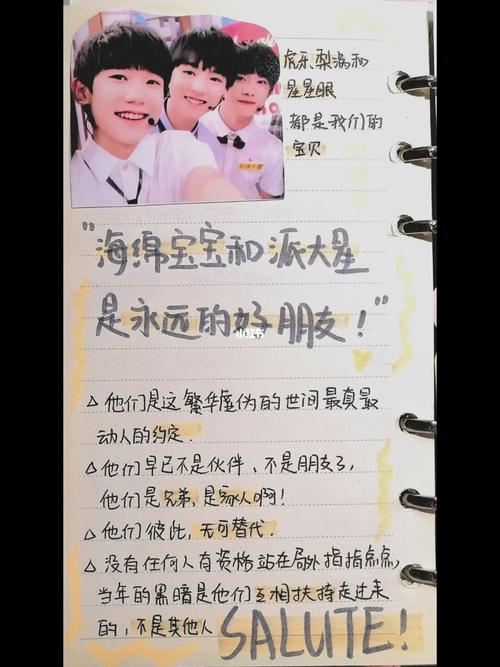 虎牙、梨涡和
星星眼
都是我们的
宝贝
"海绵宝宝和派大星
是永远的好朋友！"
小红书
△他们是这繁华虚伪的世间最真最
动人的约定.
△他们早已不是伙伴、不是朋友了,
他们是兄弟,是家人啊!
△他们彼此,无可替代.
△没有任何人有资格站在局外指指点点,
当年的黑暗是他们互相扶持走过来
的,不是其他人
SALUTE!